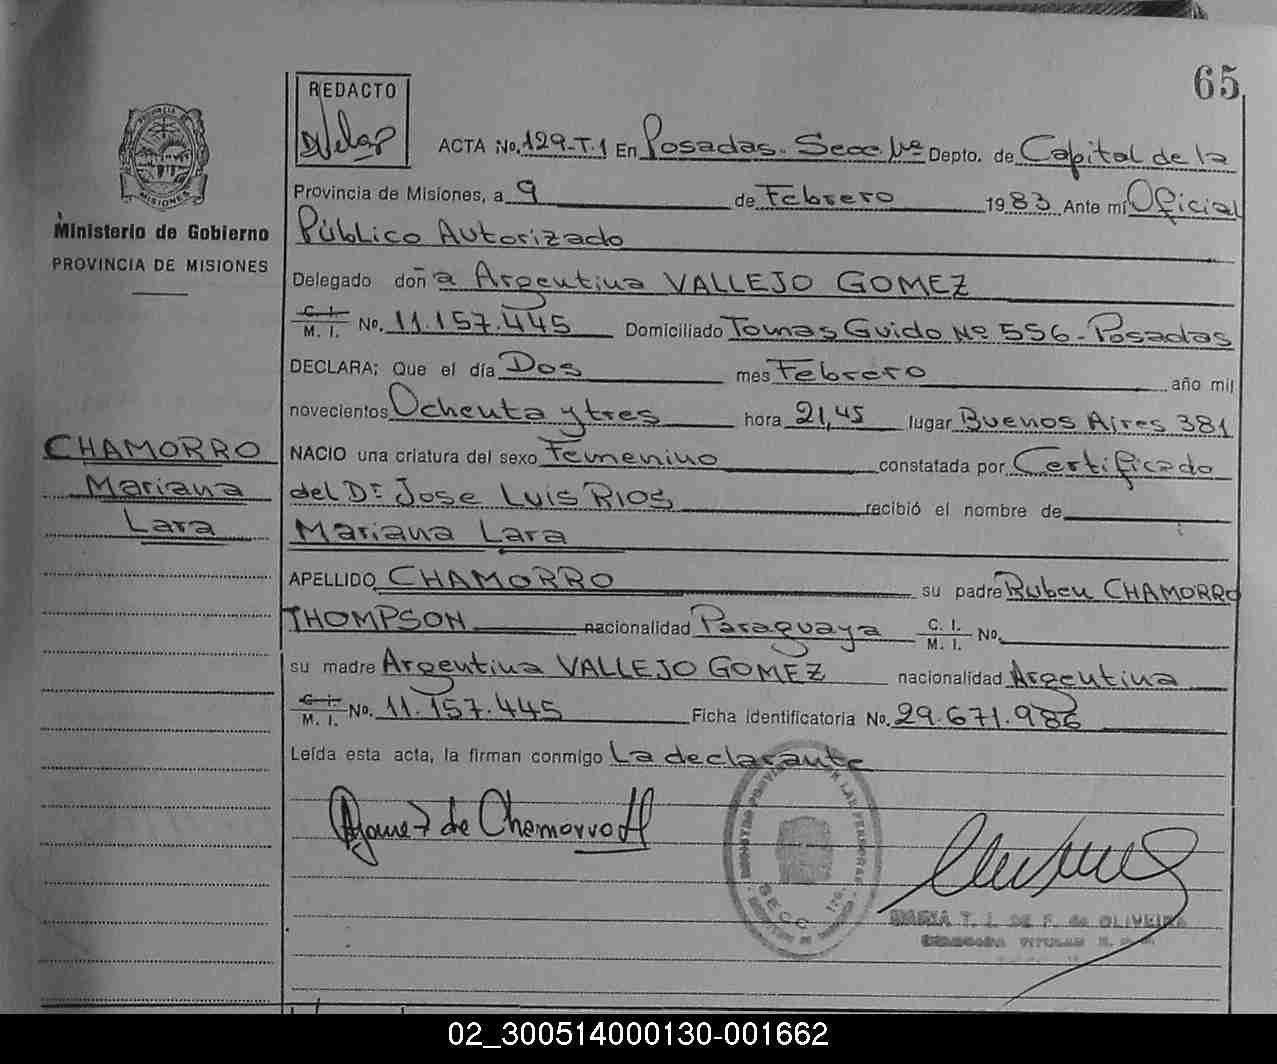 65
REDACTO
ACTA No. 129-T.1 En Posadas. Secc 1ra Depto. de Capital de la
Provincia de Misiones, a 9 de Febrero 1983 Ante mí Oficial
Público Autorizado
Delegado doña Argentina VALLEJO GOMEZ
C. I.
M. I. No. 11.157.445 Domiciliado Tomas Guido Nº 556-Posadas
DECLARA; Que el día Dos mes Febrero año mil
novecientos Ochenta y tres hora 21,45 lugar Buenos Aires 381
NACIO una criatura del sexo Femenino constatada por Certificado
del Dr Jose Luis RIOS recibió el nombre de
Mariana Lara
APELLIDO CHAMORRO su padre Ruben CHAMORRO
THOMPSON nacionalidad Paraguaya C. I.
M. I. No.
su madre Argentina VALLEJO GOMEZ nacionalidad Argentina
C. I.
M. I. No. 11.157.445 Ficha identificatoria No. 29.671.986
Leída esta acta, la firman conmigo La declarante
de Chamorro
MARIA T. J. DE F. de OLIVEIRA
MISIONES
Ministerio de Gobierno
PROVINCIA DE MISIONES
CHAMORRO
Mariana
Lara
02_300514000130-001662